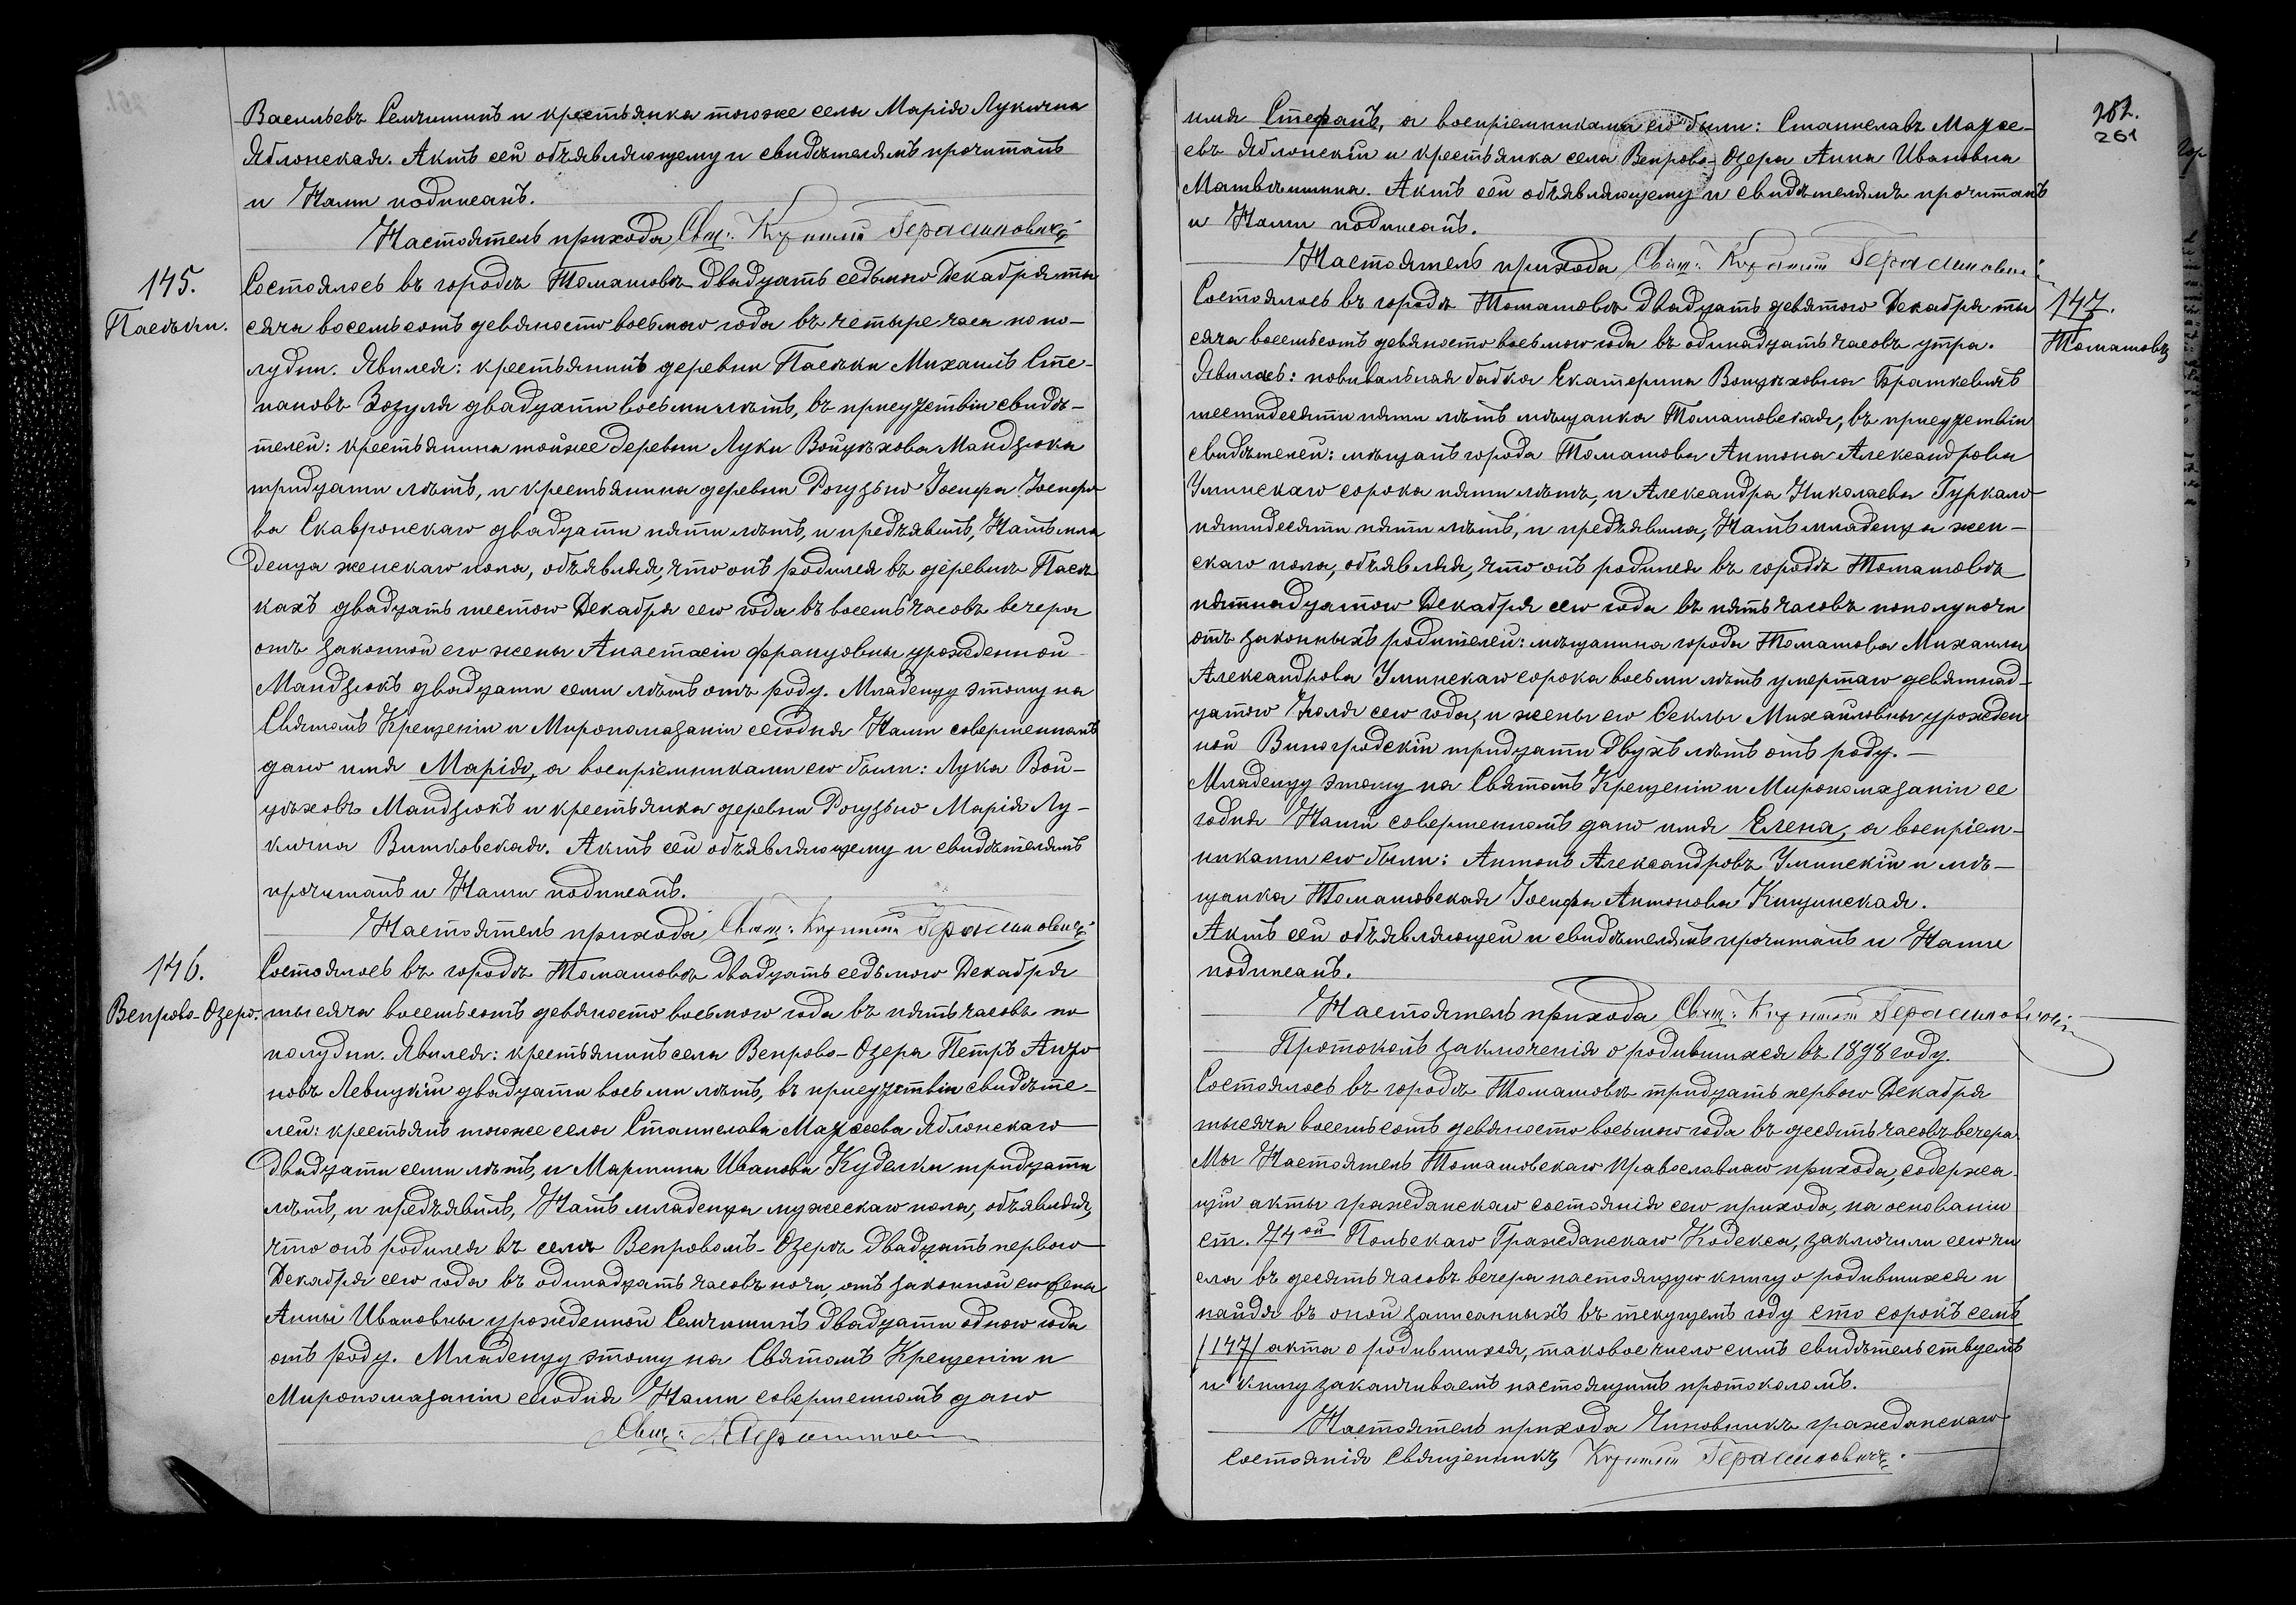 Васильевъ Семчишинъ и крестьянка тогоже села Марія Лукична
Яблонская. Актъ сей объявляющему и свидѣтелямъ прочитанъ
и Нами подписанъ.
Настоятель прихода Свящ: Герасимовичъ
145.
Пасѣки.
Состоялось въ городѣ Томашовѣ двадцать седьмого Декабря ты
сяча восемьсотъ девяносто восьмого года въ четыре часа попо-
лудни. Явился: крестьянинъ деревни Пасѣки Михаилъ Сте-
пановъ Зозуля двадцати восьми лѣтъ, въ присутствіи свидѣ-
телей: крестьянина тойже деревни Луки Войцѣхова Мандзюка
тридцати лѣтъ, и крестьянина деревни Рогузьно Іосифа Іосифо
ва Скавронскаго двадцати пяти лѣтъ, и предъявилъ, Намъ мла
денца женскаго пола, объявляя, что онъ родился въ деревнѣ Пасѣ
кахъ двадцать шестого Декабря сего года въ восемь часовъ вечера
отъ законной его жены Анастасіи Францовны урожденной
Мандзюкъ двадцати семи лѣтъ отъ роду. Младенцу этому на
Святомъ Крещеніи и Миропомазаніи сегодня Нами совершенномъ
дано имя Марія, а воспріемниками его были: Лука Вой-
цѣховъ Мандзюкъ и крестьянка деревни Рогузьно Марія Лу-
кична Витковская. Актъ сей объявляющему и свидѣтелямъ
прочитанъ и Нами подписанъ.
Настоятель прихода Свящ: Герасимовичъ
146.
Вепрово-Озеро.
Состоялось въ городѣ Томашовѣ двадцать седьмого Декабря
тысяча восемьсотъ девяносто восьмого года въ пять часовъ по
полудни. Явился: крестьянинъ села Вепрово-Озера Петръ Анто
новъ Левицкій двадцати восьми лѣтъ, въ присутствіи свидѣте-
лей: крестьянъ тогоже села Станислава Матѳеева Яблонскаго
двадцати семи лѣтъ, и Мартина Иванова Куделки тридцати
лѣтъ, и предъявилъ, Намъ младенца мужескаго пола, объявляя,
что онъ родился въ селѣ Вепровомъ-Озерѣ двадцать первого
Декабря сего года въ одинадцать часовъ ночи, отъ законной его жены
Анны Ивановны урожденной Семчишинъ двадцати одного года
отъ роду. Младенцу этому на Святомъ Крещеніи и
Миропомазаніи сегодня Нами совершенномъ дано
Свящ: Герасимович
262.
261
имя Стефанъ, а воспріемниками его были: Станиславъ Матѳе-
евъ Яблонскій и крестьянка села Вепрово-Озера Анна Ивановна
Матвѣишина. Актъ сей объявляющему и свидѣтелямъ прочитанъ
и Нами подписанъ.
Настоятель прихода Свящ: Герасимович
147.
Томашовъ
Состоялось въ городѣ Томашовѣ двадцать девятого Декабря ты
сяча восемьсотъ девяносто восьмого года въ одинадцать часовъ утра.
Явилась: повивальная бабка Екатерина Войцѣховна Брашкевичъ
шестидесяти пяти лѣтъ мѣщанка Томашовская, въ присутствіи
свидѣтелей: мѣщанъ города Томашова Антона Александрова
Уминскаго сорока пяти лѣтъ, и Александра Николаева Гуркало
пятидесяти пяти лѣтъ, и предъявила, Намъ младенца жен-
скаго пола, объявляя, что онъ родился въ городѣ Томашовѣ
пятнадцатого Декабря сего года въ пять часовъ пополуночи
отъ законныхъ родителей: мѣщанина города Томашова Михаила
Александрова Уминскаго сорока восьми лѣтъ умертаго девятнад-
цатого Іюля сего года, и жены его Ѳеклы Михайловны урожден
ной Виногродскій тридцати двухъ лѣтъ отъ роду.-
Младенцу этому на Святомъ Крещеніи и Миропомазаніи се
годня Нами совершенномъ дано имя Елена, а воспріем-
никами его были: Антонъ Александровъ Уминскій и мѣ-
щанка Томашовская Іосифа Антонова Кицинская.
Актъ сей объявляющей и свидѣтелямъ прочитанъ и Нами
подписанъ.
Настоятель прихода Свящ: Герасимович
Протоколъ заключенія о родившихся въ 1898 году.
Состоялось въ городѣ Томашовѣ тридцать первого Декабря
тысяча восемьсотъ девяносто восьмого года въ десять часовъ вечера
Мы Настоятель Томашовскаго Православнаго прихода, содержа
щій акты гражданскаго состоянія сего прихода, на основаніи
ст. 74ой Польскаго Гражданскаго Кодекса, заключили сего чи
сла въ десять часовъ вечера настоящую книгу о родившихся и
найдя въ оной записанныхъ въ текущемъ году сто сорокъ семь
/147/ акта о родившихся, таковое число симъ свидѣтельствуемъ
и книгу заканчиваемъ настоящимъ протоколомъ.
Настоятель прихода Чиновникъ гражданскаго
состоянія Священникъ Герасимовичъ.